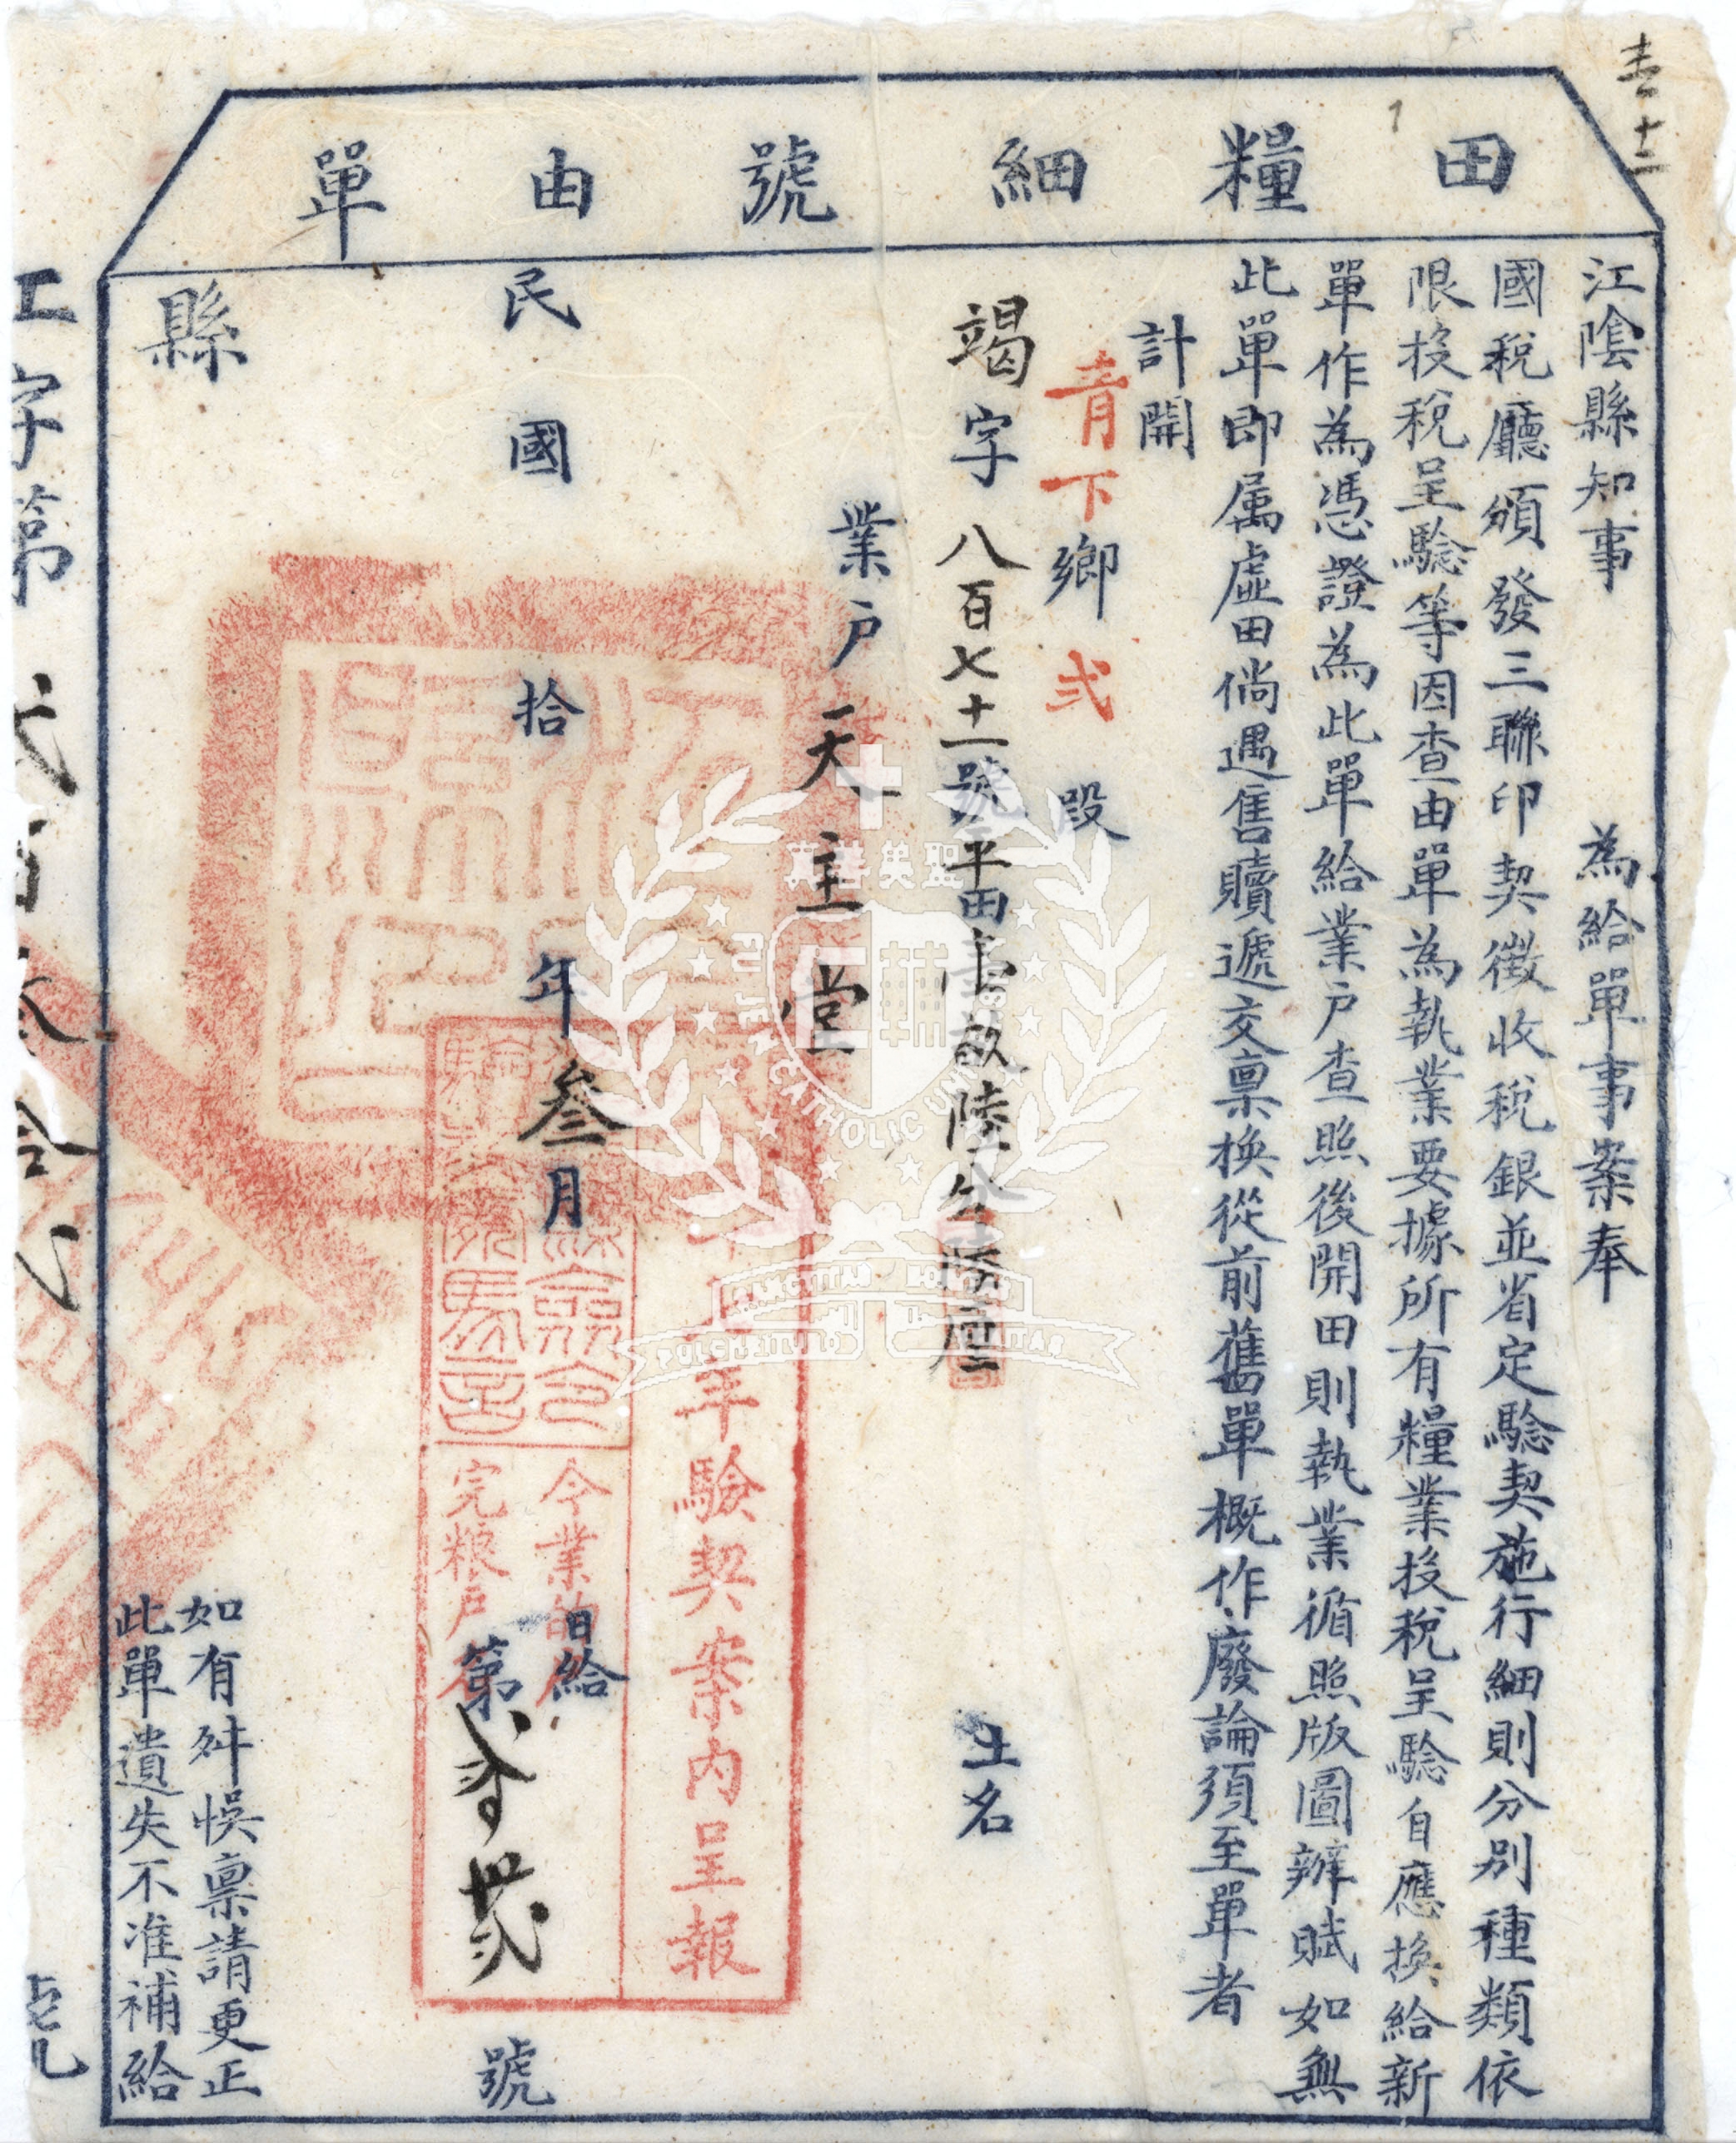 壹十二
田糧細號由單
江陰縣知事　為給單事案奉
國稅廳頒發三聯印契徵收稅銀並省定驗契施行細則分別種類依
限投稅呈驗等因查由單為執業要據所有糧業投稅呈驗自應換給新
單作為憑證為此單給業戶查照後開田則執業循照版圖辦賦如無
此單即属虛田倘遇售贖遞交稟換從前舊單概作廢論須至單者
計開
青下鄉弍段
竭字八百七十一號平田壹畝陸分陸厘　土名
業戶天主堂
年驗契案內呈報
今業
完粮戶
民國拾年叁月日給
第叁號
縣
如有舛悞稟請更正
此單遺失不准補給
字第
號
CATHOLIC